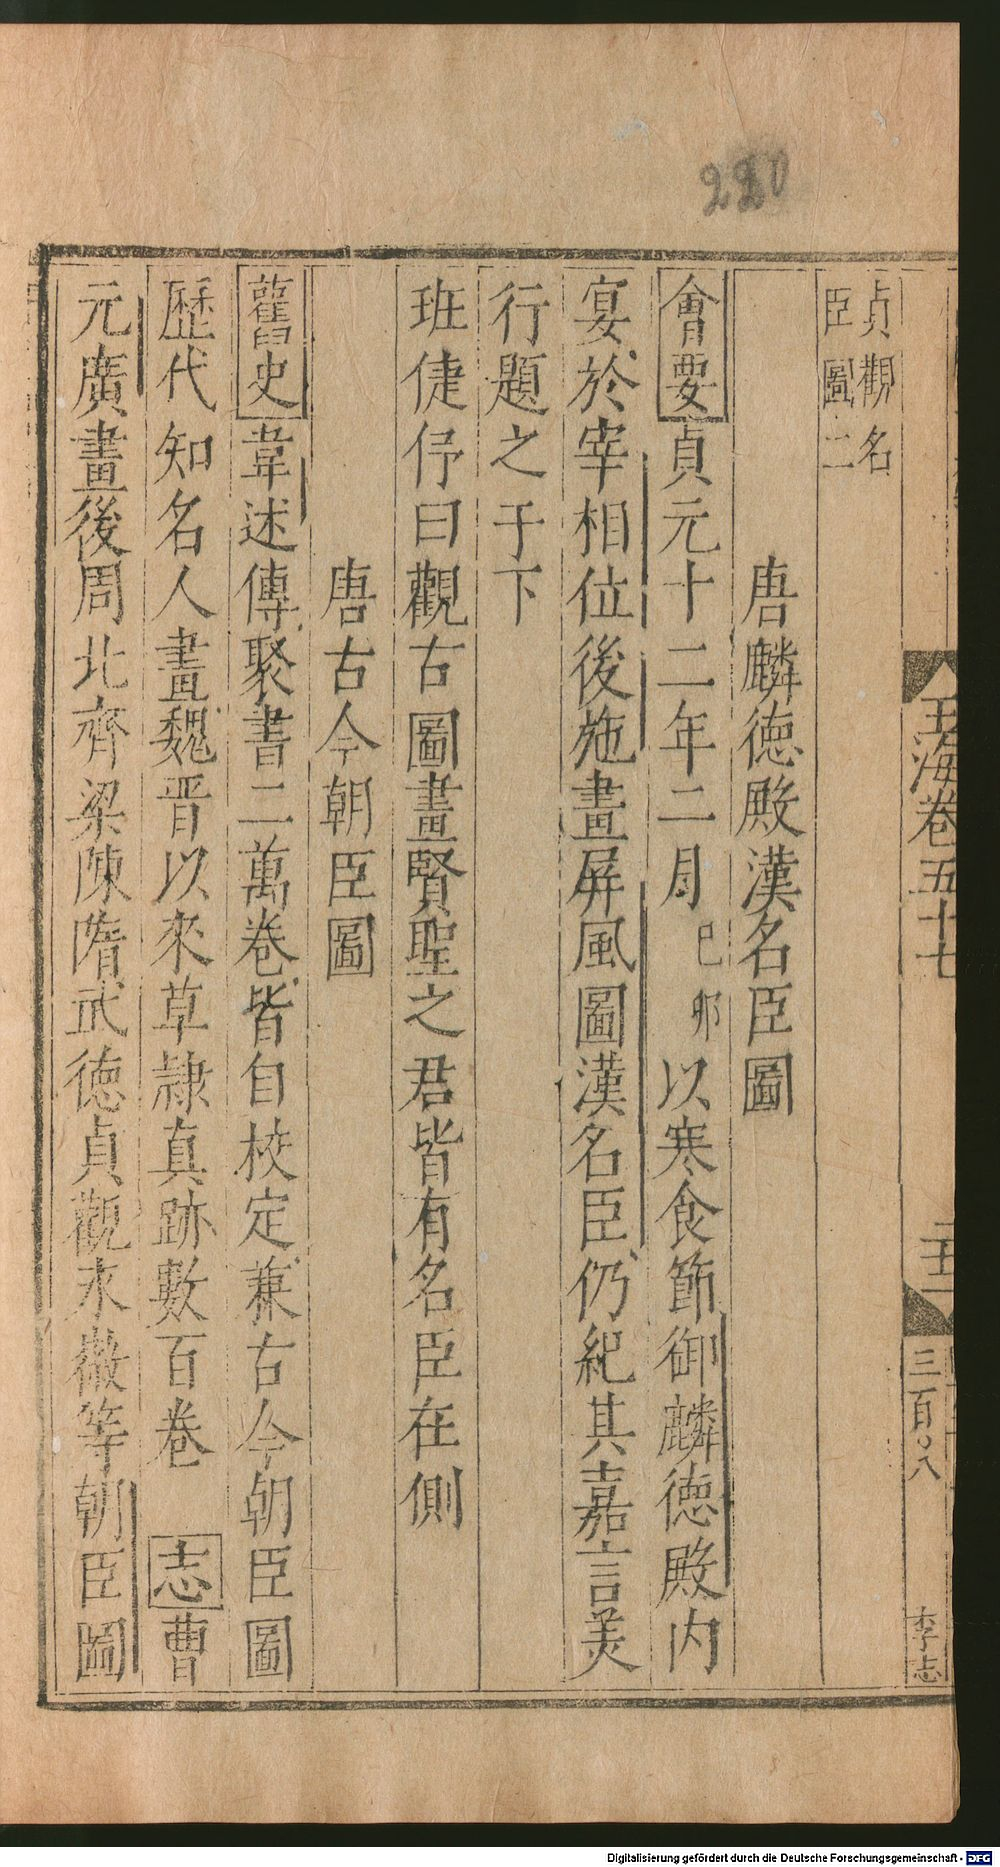 220
玉海卷五十七
三百〇八
李志
貞觀名
臣圖二
唐麟德殿漢名臣圖
會要貞元十二年二月己卯以寒食節御麟德殿内
宴於宰相位後施畫屏風圖漢名臣仍紀其嘉言美
行題之于下
班倢伃曰觀古圖畫賢聖之君皆有名臣在側
唐古今朝臣圖
舊史韋述傳聚書二萬卷皆自校定兼古今朝臣圖
歷代知名人畫魏晋以來草隷真跡數百卷 志曹
元廣畫後周北齊梁陳隋武德貞觀永徽等朝臣圖
Digitalisierung gefördert durch die Deutsche Forschungsgemeinschaft - DFG